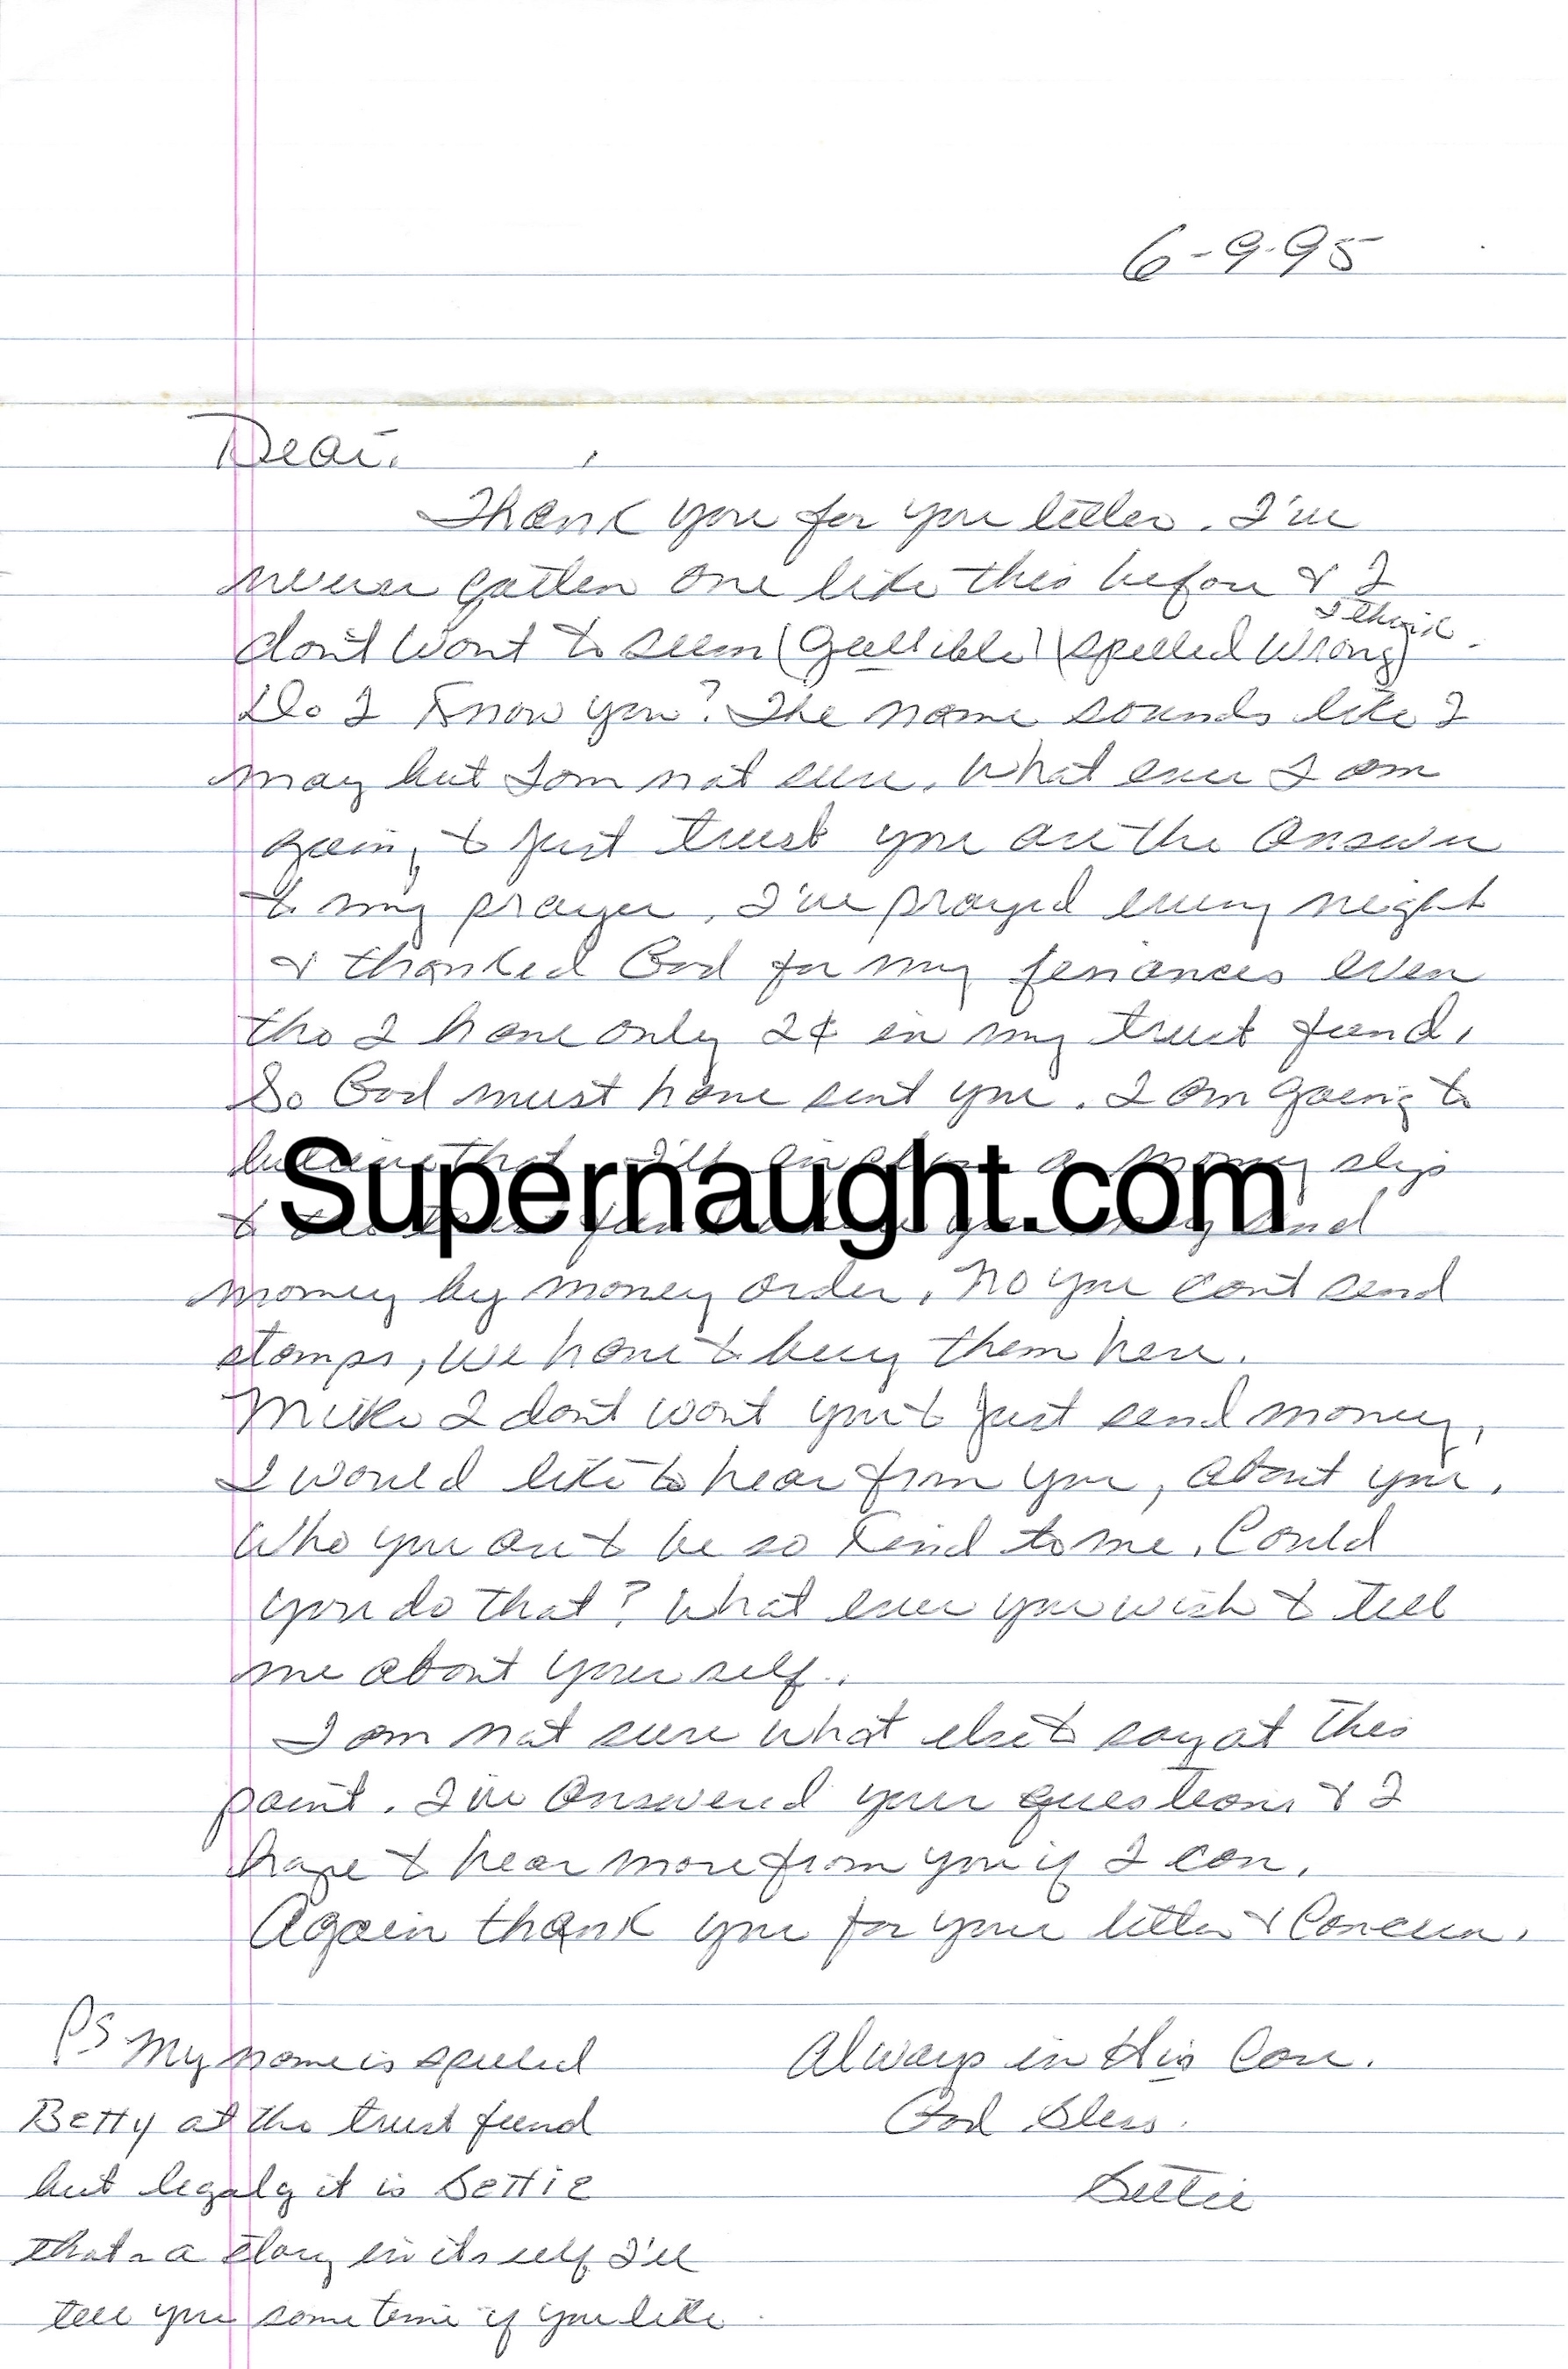 6-9-95
Dear. ,
Thank you for you letter. I've
never gotten one like this before & I
don't want to seem (Gullible) (spelled wrong) I think.
Do I know you? The name sounds like I
may but I am not sure. What ever I am
going to just trust you are the answer
to my prayer. I've prayed every night
& thanked God for my finances even
tho I have only 2¢ in my trust fund.
So God must have sent you. I am going to
believe that. I'll a money slip
to send
Supernaught.com
money by money order. No you can't send
stamps, we have to buy them here.
Mike I don't want you to just send money,
I would like to hear from you, about you.
Who you are to be so kind to me. Could
you do that? What ever you wish to tell
me about your self.
I am not sure what else to say at this
point. I've answered your questions & I
hope to hear more from you if I can.
Again thank you for your letter & Concern.
Always in His Care.
God Bless.
Bettie
PS My name is spelled
Betty at the trust fund
but legaly it is Bettie
that's a story in its self I'll
tell you some time if you like.